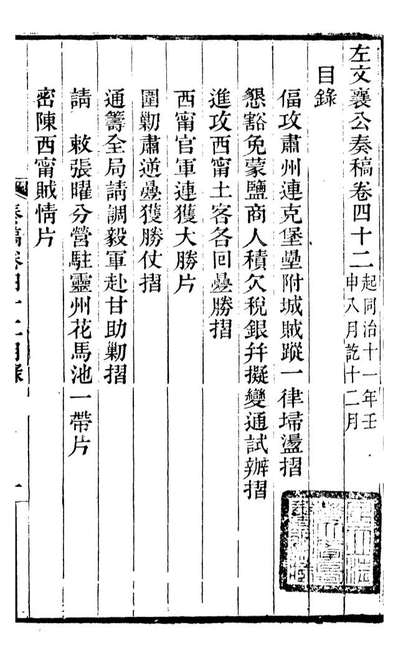 左文襄公奏稿卷四十二
起同治十一年壬
申八月訖十二月
目錄
偪攻肅州連克堡壘附城賊蹤一律埽盪摺
懇豁免蒙鹽商人積欠稅銀幷擬變通試辦摺
進攻西甯土客各回疊勝摺
西甯官軍連獲大勝片
圍勦肅逆疊獲勝仗摺
通籌全局請調毅軍赴甘助勦摺
請 敕張曜分營駐靈州花馬池一帶片
密陳西甯賊情片
奏稿卷四十二目錄
一